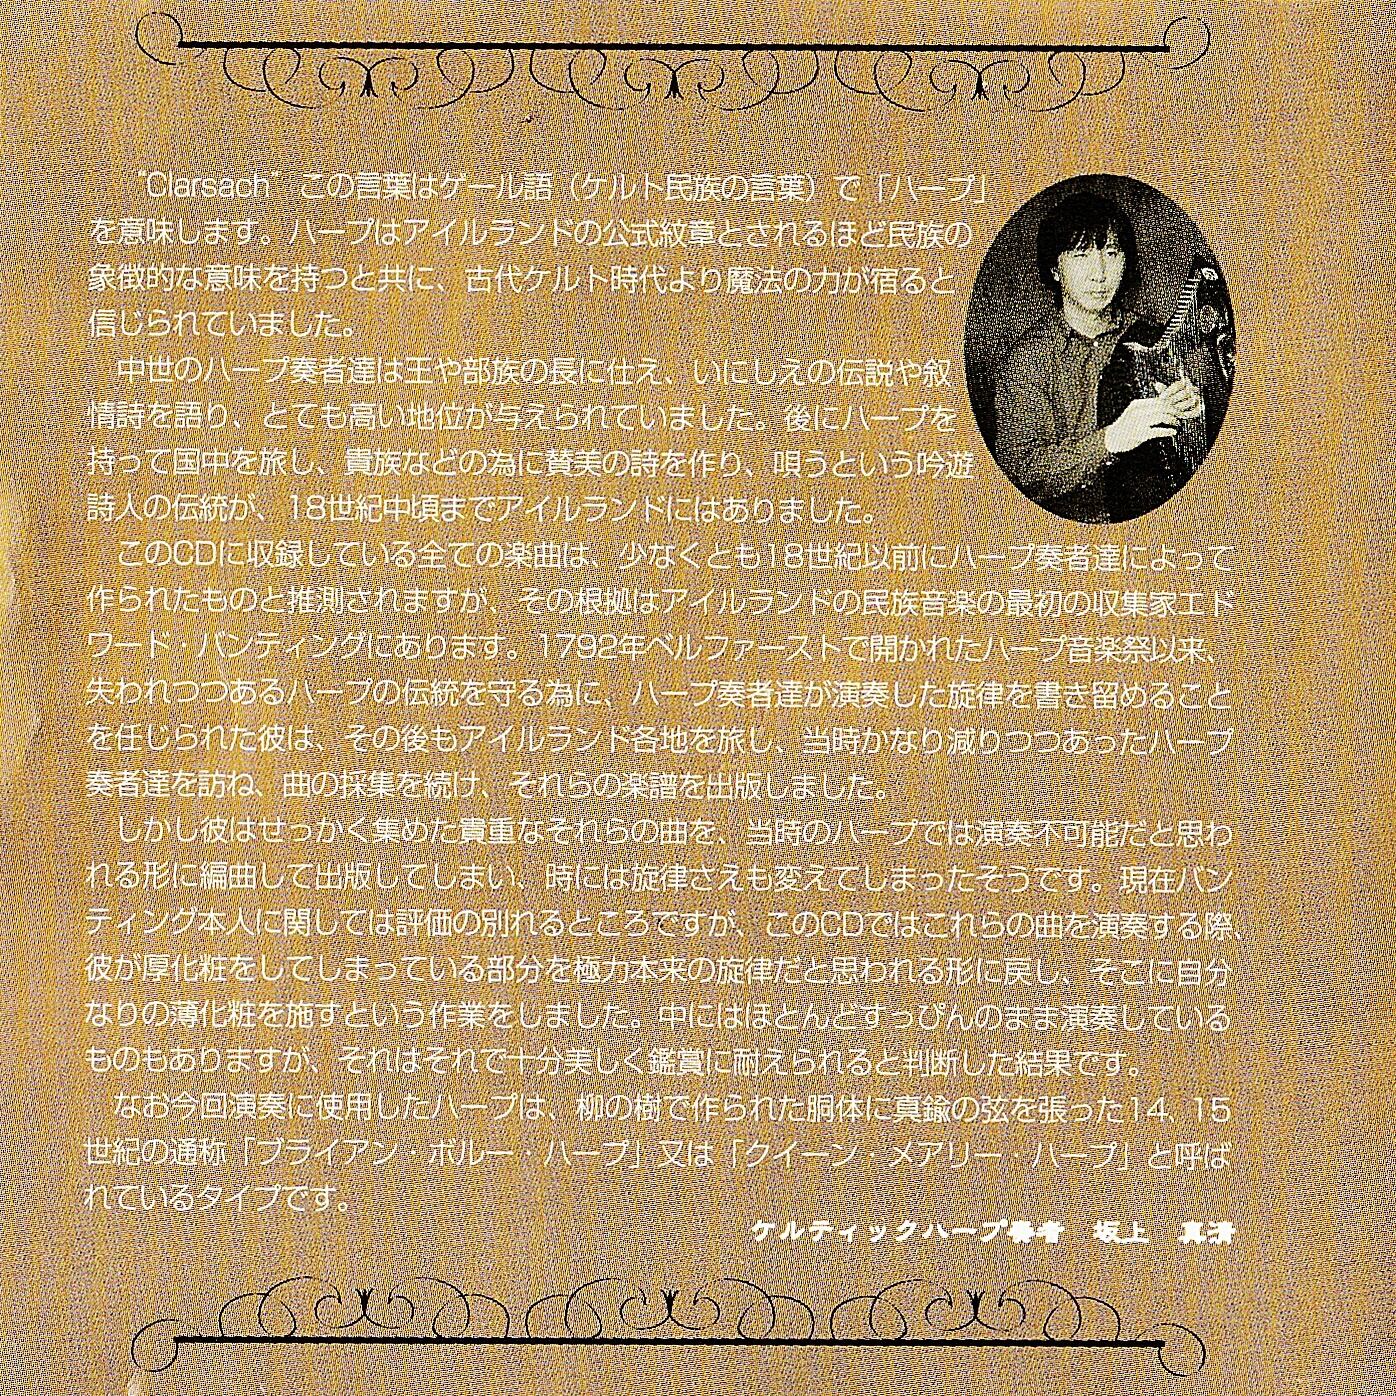 "Clarsach" この言葉はケール語（ケルト民族の言葉）で「ハープ」
を意味します。ハープはアイルランドの公式紋章とされるほど民族の
象徴的な意味を持つと共に、古代ケルト時代より魔法の力が宿ると
信じられていました。
中世のハープ奏者達は王や部族の長に仕え、いにしえの伝説や叙
情詩を語り、とても高い地位が与えられていました。後にハープを
持って国中を旅し、貴族などの為に賛美の詩を作り、唄うという吟遊
詩人の伝統が、18世紀中頃までアイルランドにはありました。
このCDに収録している全ての楽曲は、少なくとも18世紀以前にハープ奏者達によって
作られたものと推測されますが、その根拠はアイルランドの民族音楽の最初の収集家エド
ワード・バンティングにあります。1792年ベルファーストで開かれたハープ音楽祭以来、
失われつつあるハープの伝統を守る為に、ハープ奏者達が演奏した旋律を書き留めること
を任じられた彼は、その後もアイルランド各地を旅し、当時かなり減りつつあったハープ
奏者達を訪ね、曲の採集を続け、それらの楽譜を出版しました。
しかし彼はせっかく集めた貴重なそれらの曲を、当時のハープでは演奏不可能だと思わ
れる形に編曲して出版してしまい、時には旋律さえも変えてしまったそうです。現在バン
ティング本人に関しては評価の別れるところですが、このCDではこれらの曲を演奏する際、
彼が厚化粧をしてしまっている部分を極力本来の旋律だと思われる形に戻し、そこに自分
なりの薄化粧を施すという作業をしました。中にはほとんどすっぴんのまま演奏している
ものもありますが、それはそれで十分美しく鑑賞に耐えられると判断した結果です。
なお今回演奏に使用したハープは、柳の樹で作られた胴体に真鍮の弦を張った14, 15
世紀の通称「ブライアン・ボルー・ハープ」又は「クイーン・メアリー・ハープ」と呼ば
れているタイプです。
ケルティックハープ奏者　坂上　真清